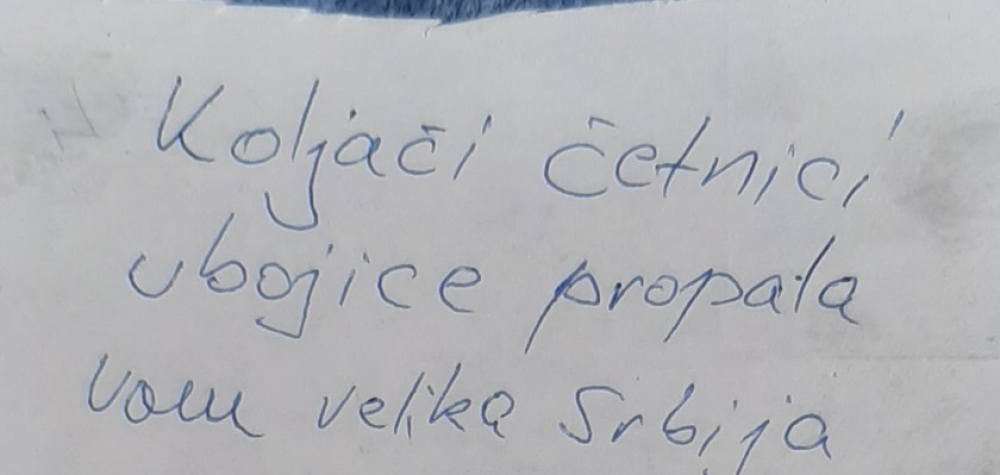 Koljači četnici
ubojice propala
vam velika Srbija